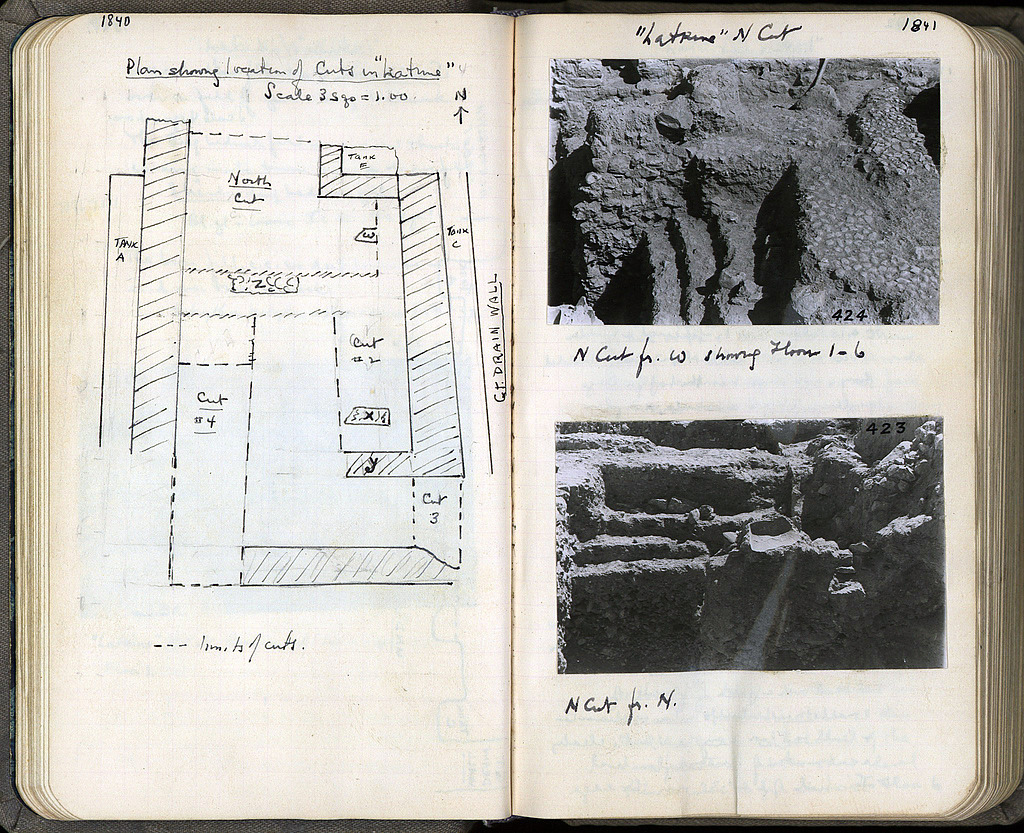 1840
Plan showing location of Cuts in "Latrine"
Scale 3 sqs = 1.00.
N
TANK
E
North
Cut
W
TANK
A
TANK
C
Z
Cut
#2
GT. DRAIN WALL
Cut
#4
X
Y
Cut
3
--- limits of cuts.
1841
"Latrine" N Cut
424
N Cut fr. W showing Floors 1-6
423
N Cut fr. N.